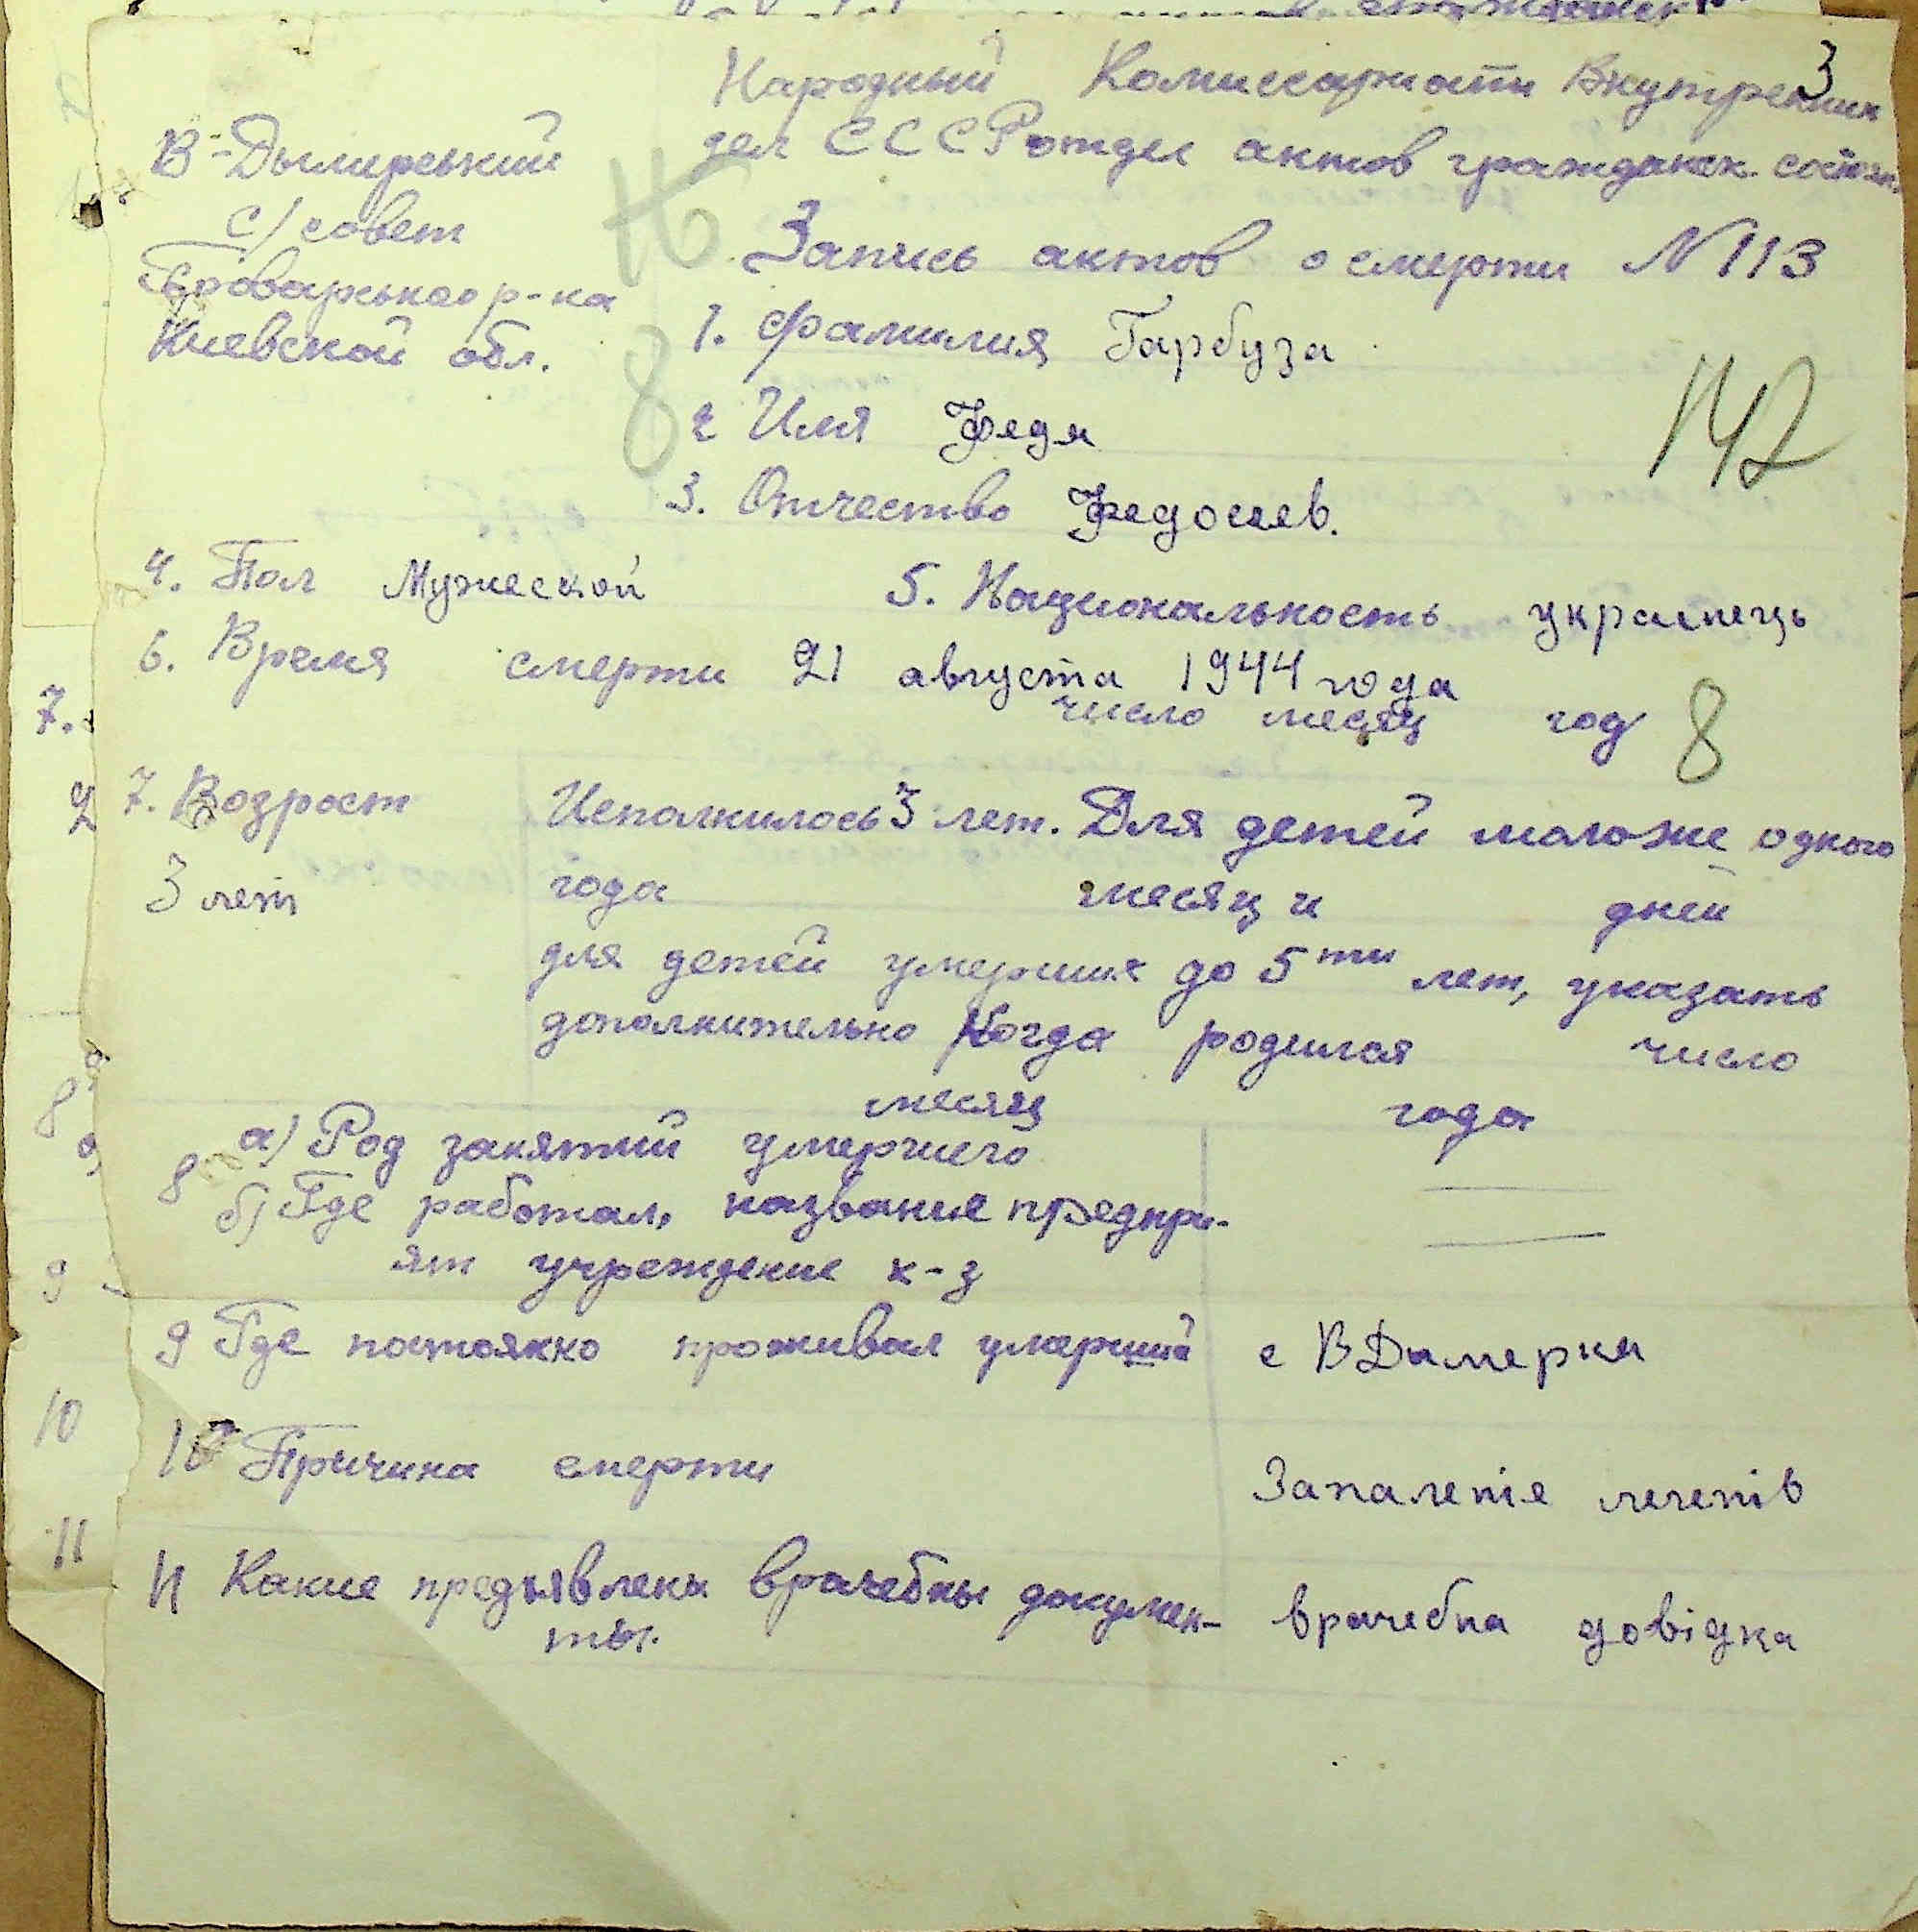 3
Народный Комиссариати Внутренних
дел СССР отдел актов гражданск. состоян.
В-Дымерський
с/совет
Броварського р-ка
Киевской обл.
Запись актов о смерти N 113
1. Фамилия Гарбуза
142
8
2 Имя Федя
3. Отчество Федосеев.
4. Пол Мужеской 5. Национальность украінець
6. Время смерти 21 августа 1944 года
число месяц год 8
7. Возраст Исполнилось 3 лет. Для детей моложе одного
3 лет года месяц и дней
для детей умерших до 5ти лет, указать
дополнительно Когда родился число
месяц года
8 а) Род занятий умершего
б) Где работал, название предпри-
ят учреждение к-з
9 Где постоянно проживал умерший с ВДымерки
10 Причина смерти Запаленіе легенів
11 Какие предъявлены врачебны докумен- врачебна довідка
ты.
7.
2
8
9
10
11